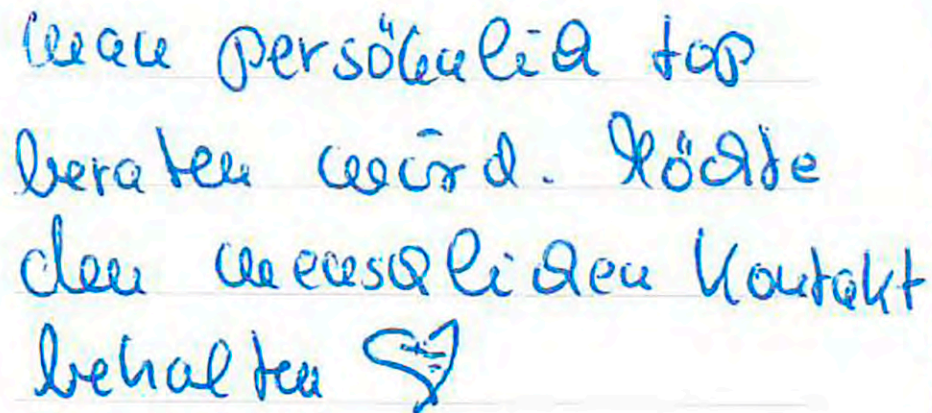 man persönlich top
beraten wird. Möchte
den menschlichen Kontakt
behalten ♡